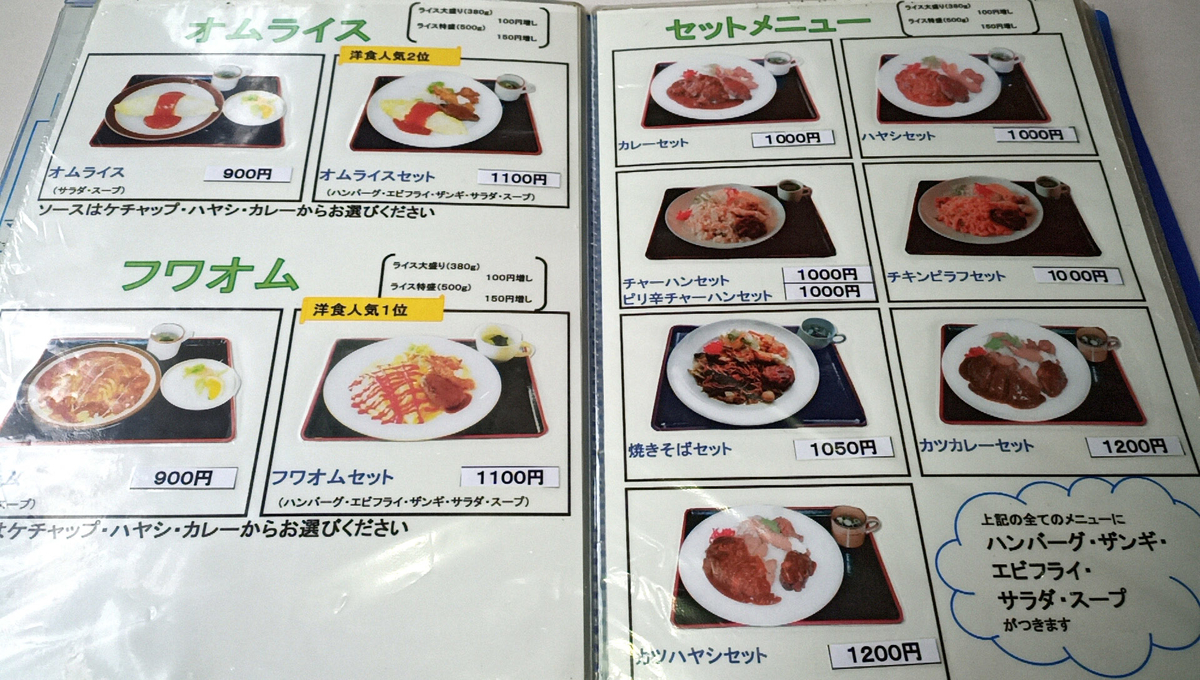 オムライス
ライス大盛り(380g) 100円増し
ライス特盛(500g) 150円増し
洋食人気2位
オムライス 900円
(サラダ・スープ)
オムライスセット 1100円
(ハンバーグ・エビフライ・ザンギ・サラダ・スープ)
ソースはケチャップ・ハヤシ・カレーからお選びください
フワオム
ライス大盛り(380g) 100円増し
ライス特盛(500g) 150円増し
洋食人気1位
ム 900円
スープ)
フワオムセット 1100円
(ハンバーグ・エビフライ・ザンギ・サラダ・スープ)
はケチャップ・ハヤシ・カレーからお選びください
セットメニュー
ライス大盛り(380g) 100円増し
ライス特盛(500g) 150円増し
カレーセット 1000円
ハヤシセット 1000円
チャーハンセット 1000円
ピリ辛チャーハンセット 1000円
チキンピラフセット 1000円
焼きそばセット 1050円
カツカレーセット 1200円
カツハヤシセット 1200円
上記の全てのメニューに
ハンバーグ・ザンギ・
エビフライ・
サラダ・スープ
がつきます